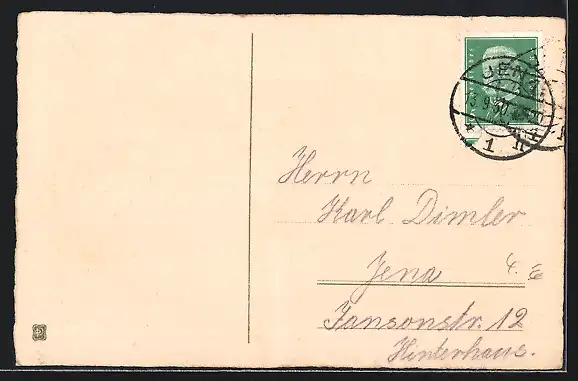 JENA
13.9.30
* 1 h
Herrn
Karl Dimler
Jena
Jansonstr. 12
Hinterhaus.